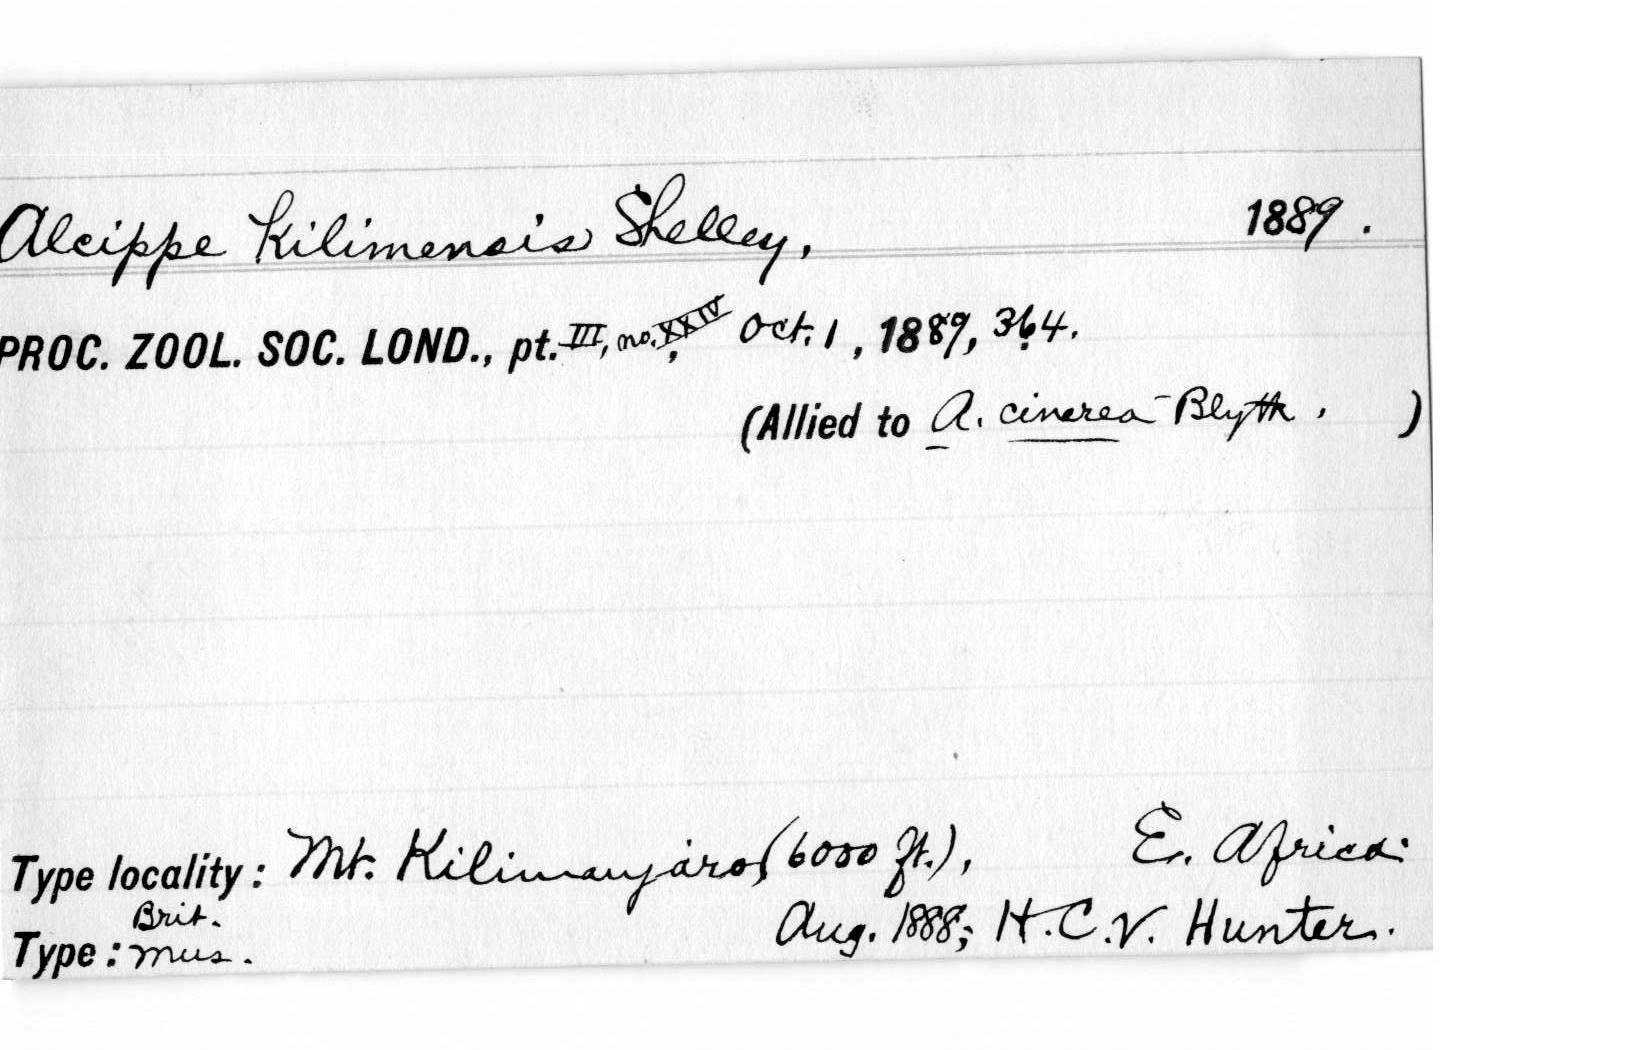 Alcippe kilimensis Shelley, 1889.
PROC. ZOOL. SOC. LOND., pt. III, no. XXIV, Oct. 1, 1889, 364.
(Allied to A. cinerea Blyth. )
Type locality: Mt. Kilimanjaro, (6000 ft.), E. Africa.
Brit. Aug. 1888; H.C.V. Hunter.
Type: Mus.